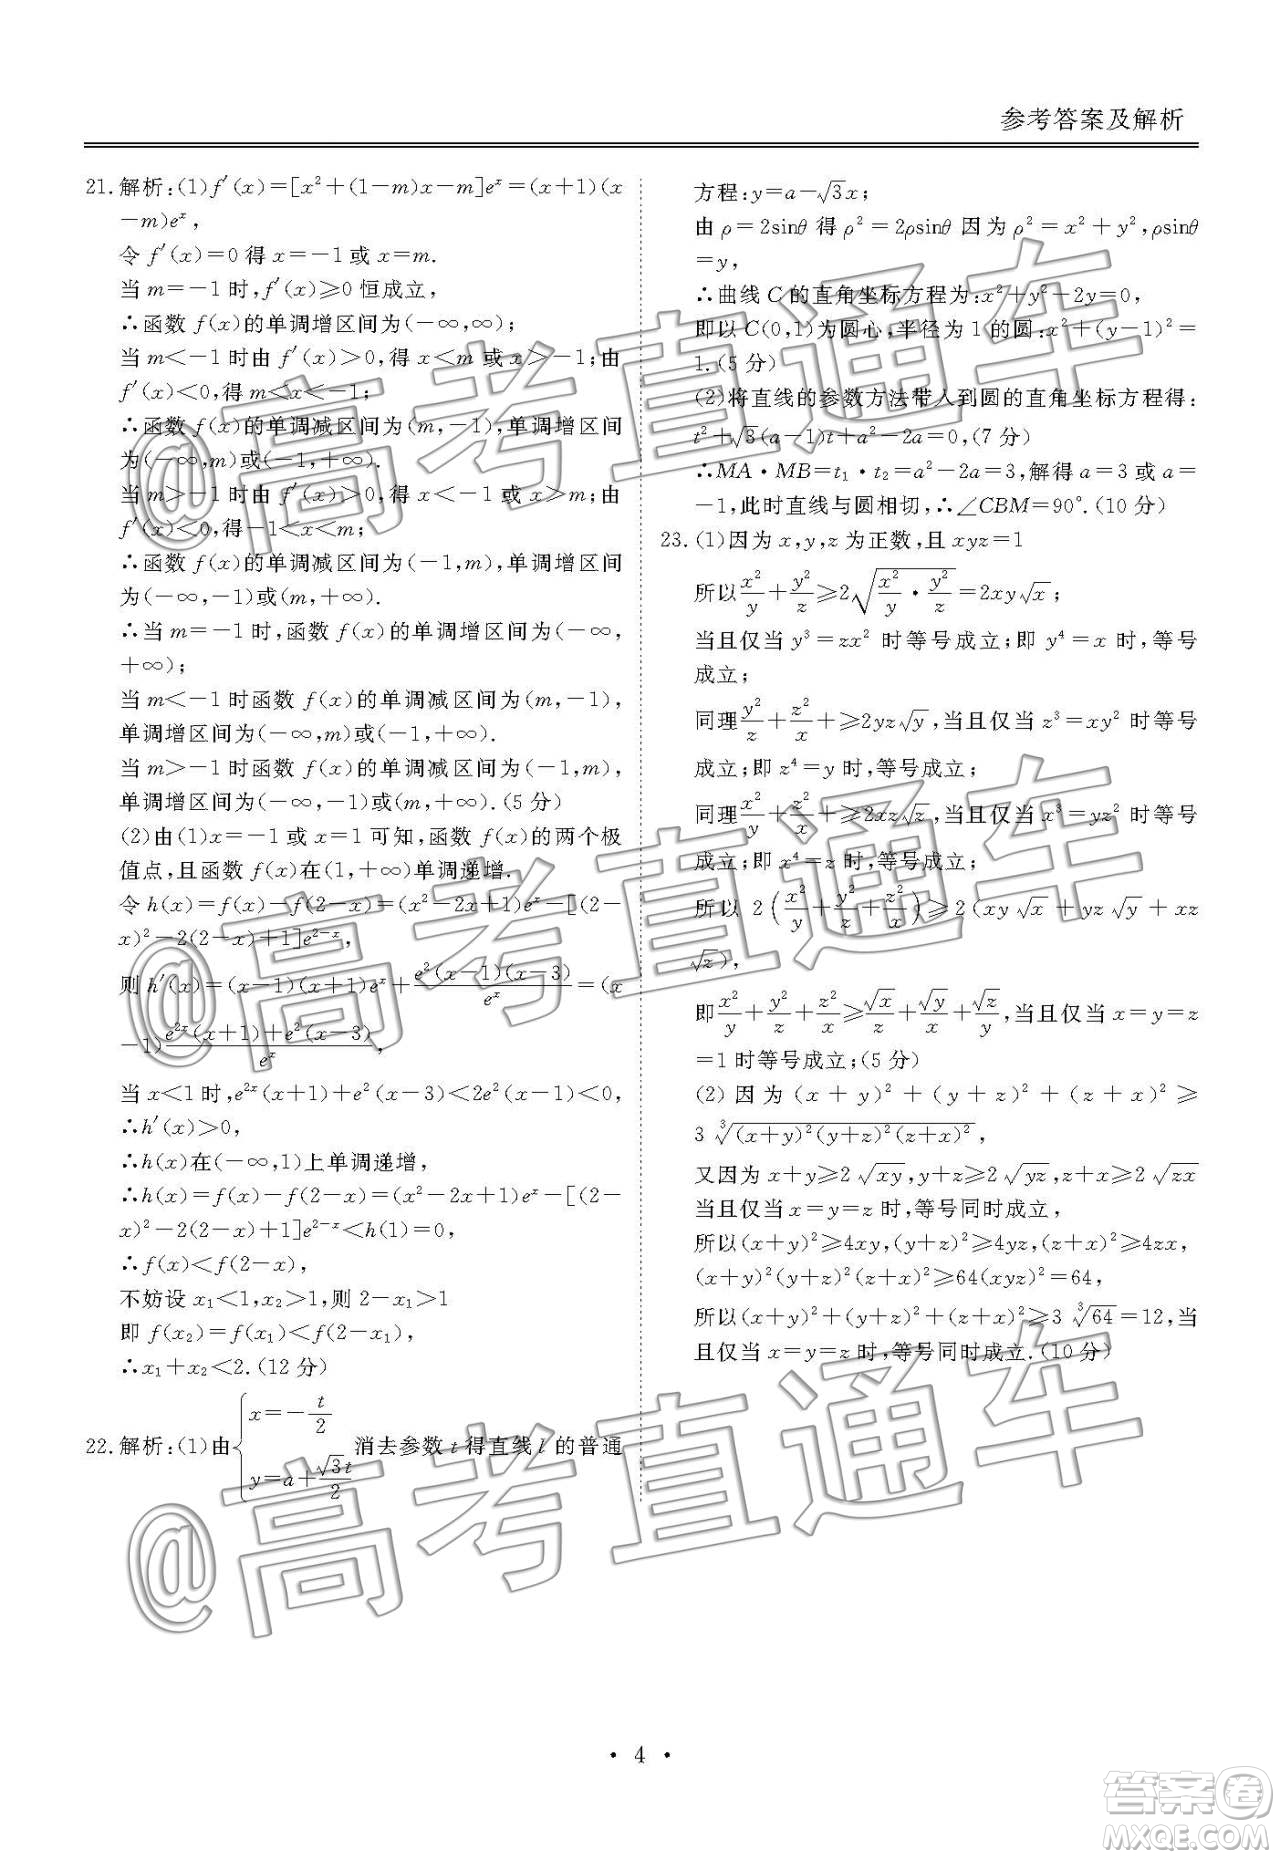 参考答案及解析
21. 解析:(1)f′(x)=[x²+(1−m)x−m]eˣ=(x+1)(x
−m)eˣ,
令 f′(x)=0 得 x=−1 或 x=m.
当 m=−1 时,f′(x)⩾0 恒成立,
∴函数 f(x)的单调增区间为(−∞,∞);
当 m<−1 时由 f′(x)>0,得 x<m 或 x>−1;由
f′(x)<0,得 m<x<−1;
∴函数 f(x)的单调减区间为(m,−1),单调增区间
为(−∞,m)或(−1,+∞).
当 m>−1 时由 f′(x)>0,得 x<−1 或 x>m;由
f′(x)<0,得−1<x<m;
∴函数 f(x)的单调减区间为(−1,m),单调增区间
为(−∞,−1)或(m,+∞).
∴当 m=−1 时,函数 f(x)的单调增区间为(−∞,
+∞);
当 m<−1 时函数 f(x)的单调减区间为(m,−1),
单调增区间为(−∞,m)或(−1,+∞).
当 m>−1 时函数 f(x)的单调减区间为(−1,m),
单调增区间为(−∞,−1)或(m,+∞).(5 分)
(2)由(1)x=−1 或 x=1 可知,函数 f(x)的两个极
值点,且函数 f(x)在(1,+∞)单调递增.
令 h(x)=f(x)−f(2−x)=(x²−2x+1)eˣ−[(2−
x)²−2(2−x)+1]e²⁻ˣ,
则 h′(x)=(x−1)(x+1)eˣ+e²(x−1)(x−3)/eˣ=(x
−1)e²ˣ(x+1)+e²(x−3)/eˣ,
当 x<1 时,e²ˣ(x+1)+e²(x−3)<2e²(x−1)<0,
∴h′(x)>0,
∴h(x)在(−∞,1)上单调递增,
∴h(x)=f(x)−f(2−x)=(x²−2x+1)eˣ−[(2−
x)²−2(2−x)+1]e²⁻ˣ<h(1)=0,
∴f(x)<f(2−x),
不妨设 x₁<1,x₂>1,则 2−x₁>1
即 f(x₂)=f(x₁)<f(2−x₁),
∴x₁+x₂<2.(12 分)
22. 解析:(1)由{x=−t/2 y=a+√3t/2 消去参数 t 得直线 l 的普通
方程:y=a−√3x;
由 ρ=2sinθ 得 ρ²=2ρsinθ 因为 ρ²=x²+y²,ρsinθ
=y,
∴曲线 C 的直角坐标方程为:x²+y²−2y=0,
即以 C(0,1)为圆心,半径为 1 的圆:x²+(y−1)²=
1.(5 分)
(2)将直线的参数方法带入到圆的直角坐标方程得:
t²+√3(a−1)t+a²−2a=0,(7 分)
∴MA·MB=t₁·t₂=a²−2a=3,解得 a=3 或 a=
−1,此时直线与圆相切,∴∠CBM=90°.(10 分)
23. (1)因为 x,y,z 为正数,且 xyz=1
所以x²/y+y²/z⩾2√(x²/y·y²/z)=2xy√x;
当且仅当 y³=zx² 时等号成立;即 y⁴=x 时,等号
成立;
同理y²/z+z²/x+⩾2yz√y,当且仅当 z³=xy² 时等号
成立;即 z⁴=y 时,等号成立;
同理x²/y+z²/x+⩾2xz√z,当且仅当 x³=yz² 时等号
成立;即 x⁴=z 时,等号成立;
所以 2(x²/y+y²/z+z²/x)⩾2(xy√x+yz√y+xz
√z),
即x²/y+y²/z+z²/x⩾√x/z+√y/x+√z/y,当且仅当 x=y=z
=1 时等号成立;(5 分)
(2)因为(x+y)²+(y+z)²+(z+x)²⩾
3∛((x+y)²(y+z)²(z+x)²),
又因为 x+y⩾2√xy,y+z⩾2√yz,z+x⩾2√zx
当且仅当 x=y=z 时,等号同时成立,
所以(x+y)²⩾4xy,(y+z)²⩾4yz,(z+x)²⩾4zx,
(x+y)²(y+z)²(z+x)²⩾64(xyz)²=64,
所以(x+y)²+(y+z)²+(z+x)²⩾3∛64=12,当
且仅当 x=y=z 时,等号同时成立.(10 分)
· 4 ·
@高考直通车
@高考直通车
@高考直通车
答案卷
MXQE.COM